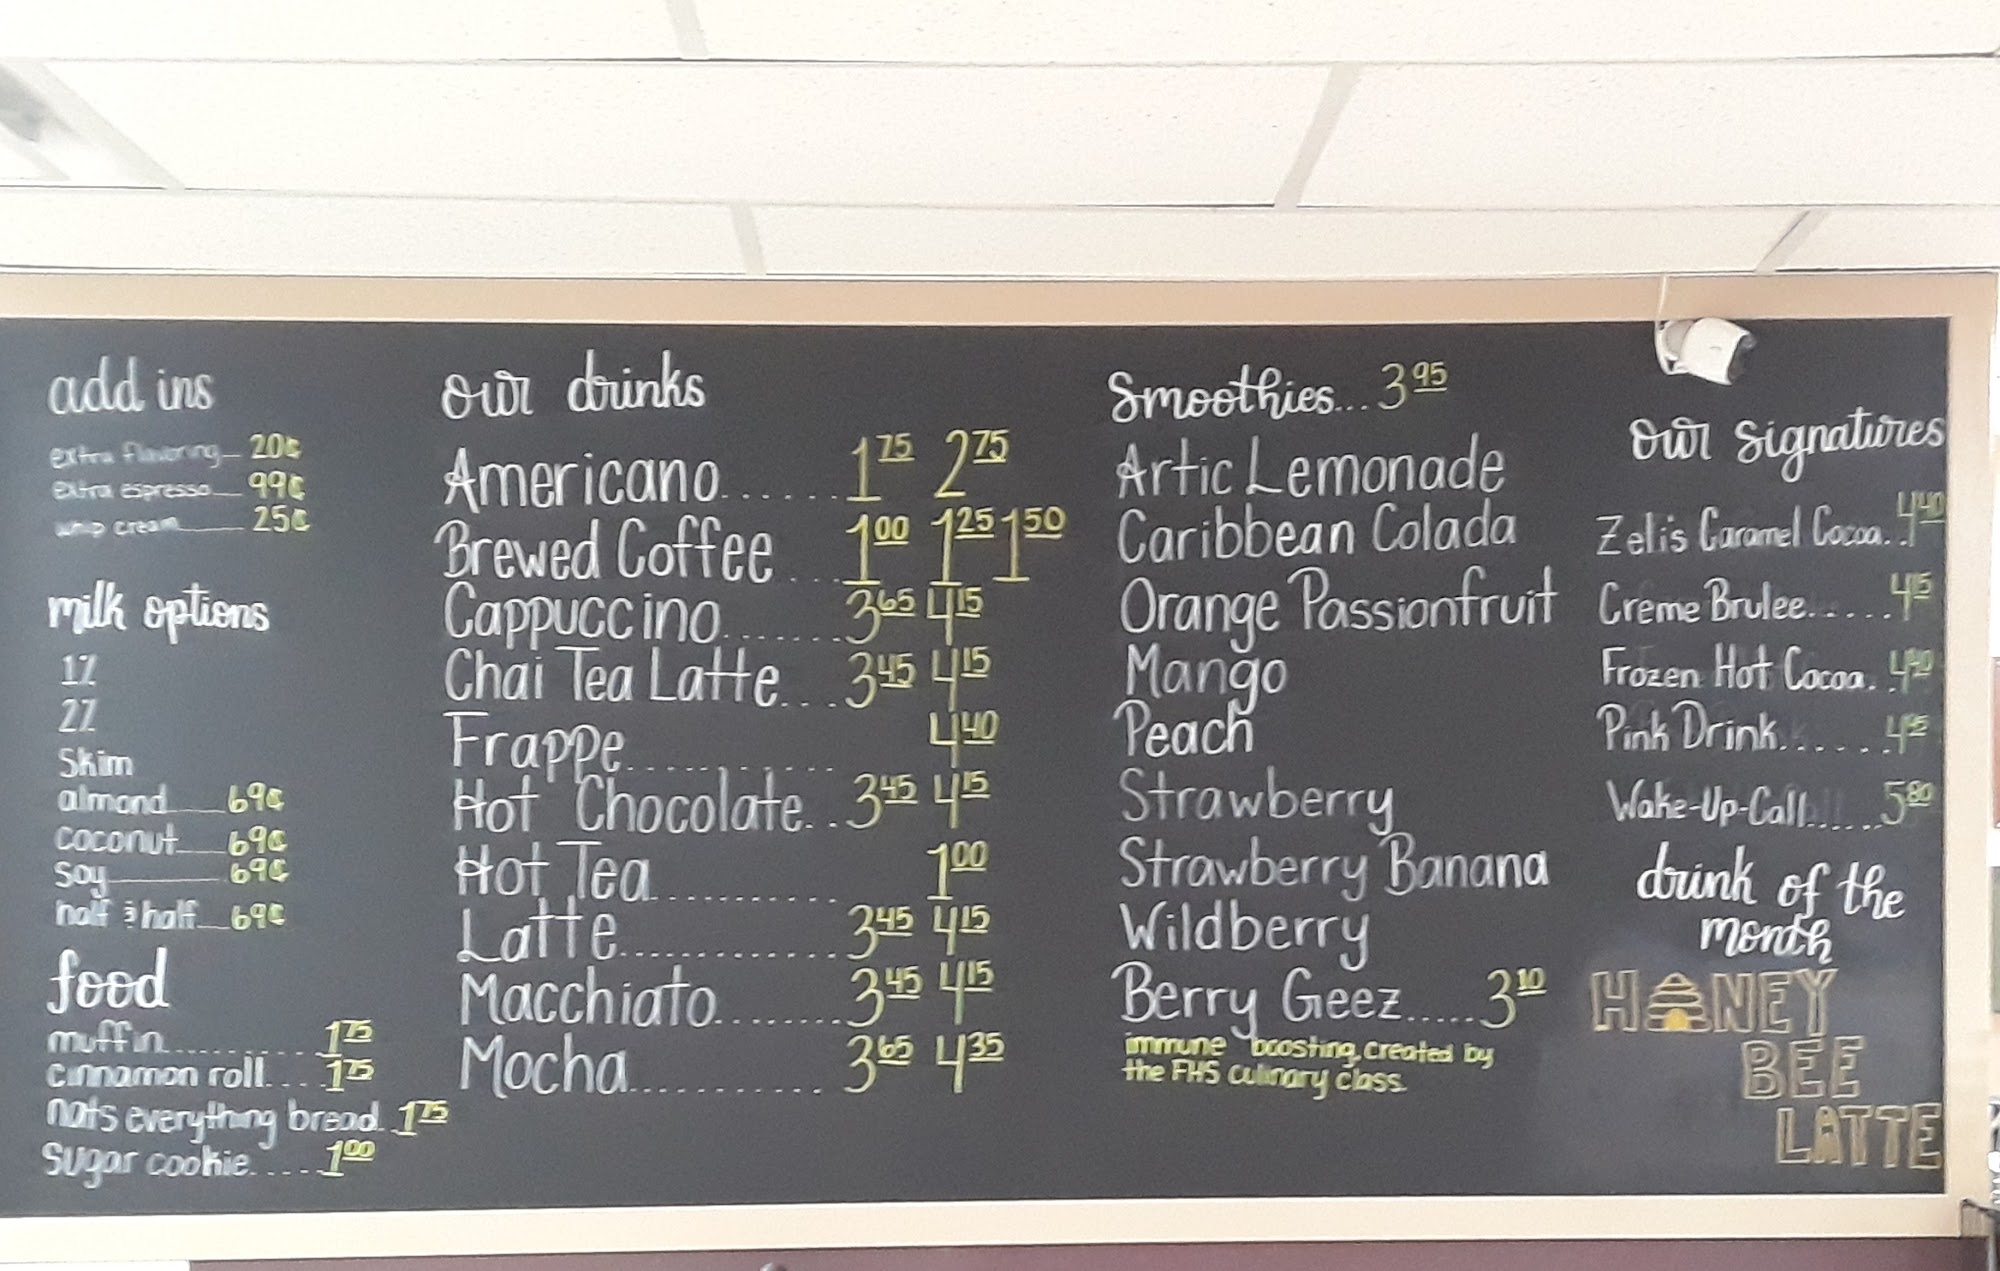 add ins
extra flavoring 20¢
extra espresso 99¢
whip cream 25¢
milk options
1%
2%
Skim
almond 69¢
coconut 69¢
soy 69¢
half & half 69¢
food
muffin.......... 1 75
cinnamon roll.... 1 75
nats everything bread.. 1 75
Sugar cookie..... 1 00
our drinks
Americano...... 1 75 2 75
Brewed Coffee .... 1 00 1 25 1 50
Cappuccino....... 3 65 4 15
Chai Tea Latte.... 3 45 4 15
Frappe........... 4 40
Hot Chocolate... 3 45 4 15
Hot Tea........... 1 00
Latte............. 3 45 4 15
Macchiato........ 3 45 4 15
Mocha........... 3 65 4 35
Smoothies... 3 95
Artic Lemonade
Caribbean Colada
Orange Passionfruit
Mango
Peach
Strawberry
Strawberry Banana
Wildberry
Berry Geez..... 3 10
immune boosting, created by
the FHS culinary class.
our signatures
Zeli's Caramel Cocoa.. 4 40
Creme Brulee..... 4 15
Frozen Hot Cocoa.. 4 40
Pink Drink.......
Wake-Up-Call...... 5 80
drink of the
month
HONEY
BEE
LATTE